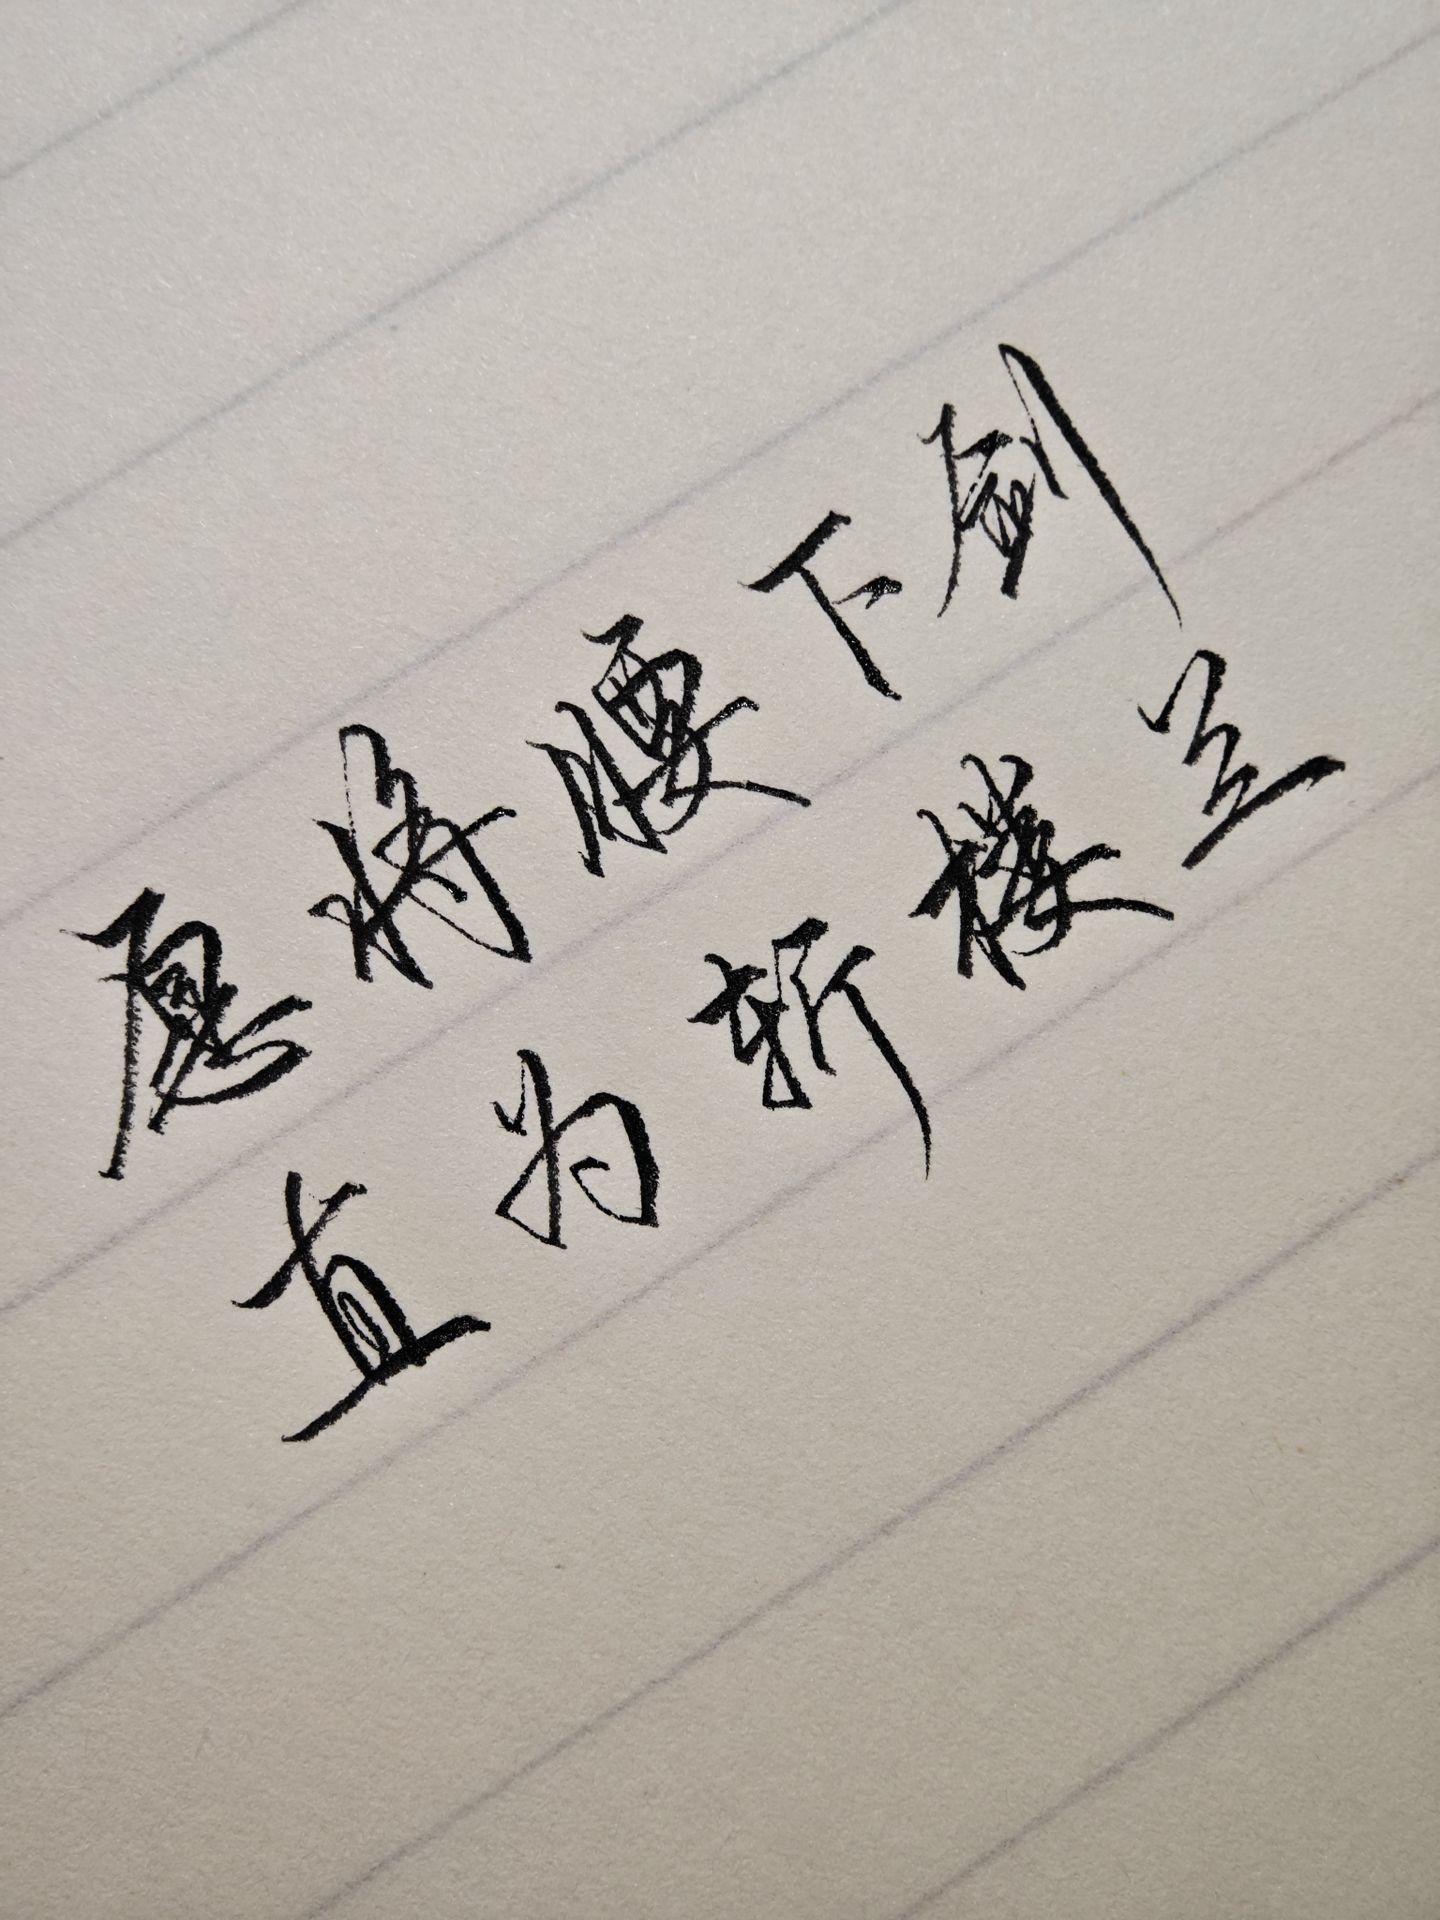 愿将腰下剑
直为斩楼兰